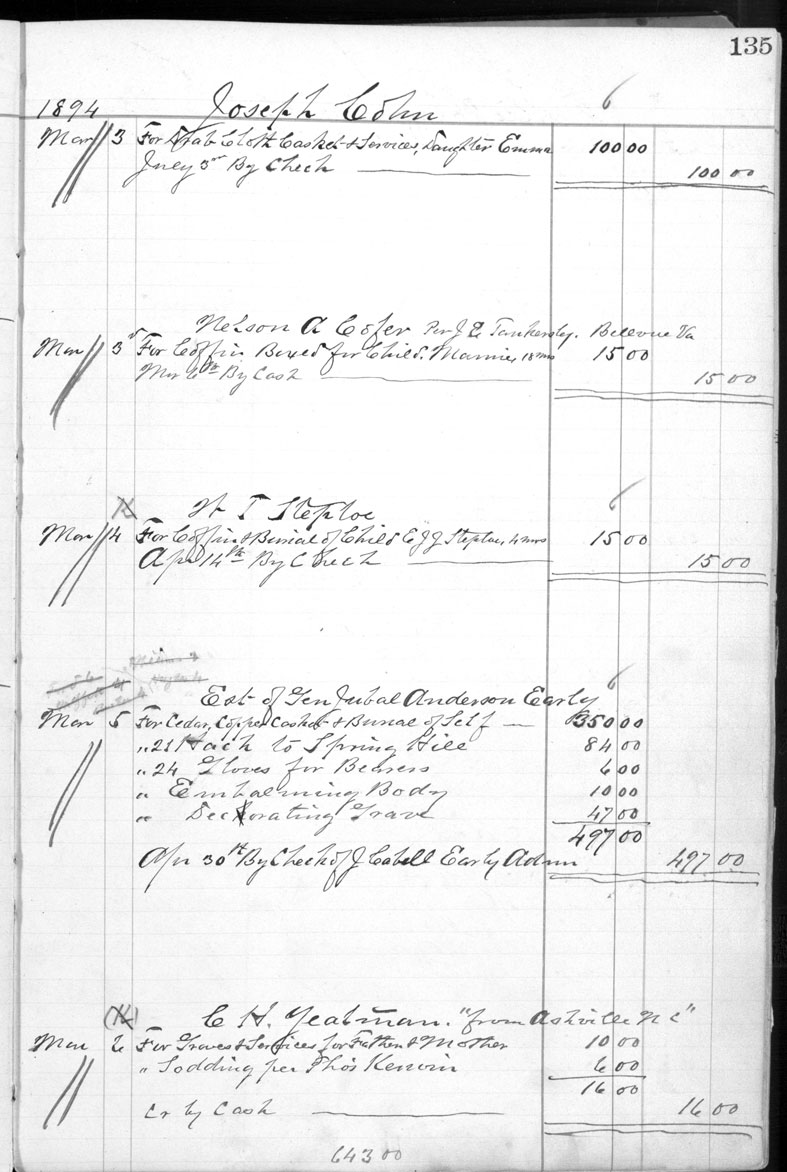 135
1894 Joseph Cohn 6
Mar 3 For Drab Cloth Casket & Services, Daughter Emma 100 00
July 3rd By Check 100 00
Nelson A Cofer Per J E Tankersley. Bellevue Va
Mar 3rd For Coffin Boxed for Child. Mamie, 18 mos 15 00
Mar 6th By Cash 15 00
W T Steptoe 6
Mar 4 For Coffin & Burial of Child C J J Steptoe, 4 mos 15 00
Apr 14th By Check 15 00
Est of Gen Jubal Anderson Early 6
Mar 5 For Cedar, Copper Casket & Burial of Self 350 00
" 21 Hack to Spring Hill 84 00
" 24 Gloves for Bearers 6 00
" Embalming Body 10 00
" Decorating Grave 47 00
497 00
Apr 30th By Check of J Cabell Early Admn 497 00
C H. Yeatman. "from Ashville N C"
Mar 6 For Graves & Services for Father & Mother 10 00
" Sodding per Thos Kerwin 6 00
16 00
Cr by Cash 16 00
643 00